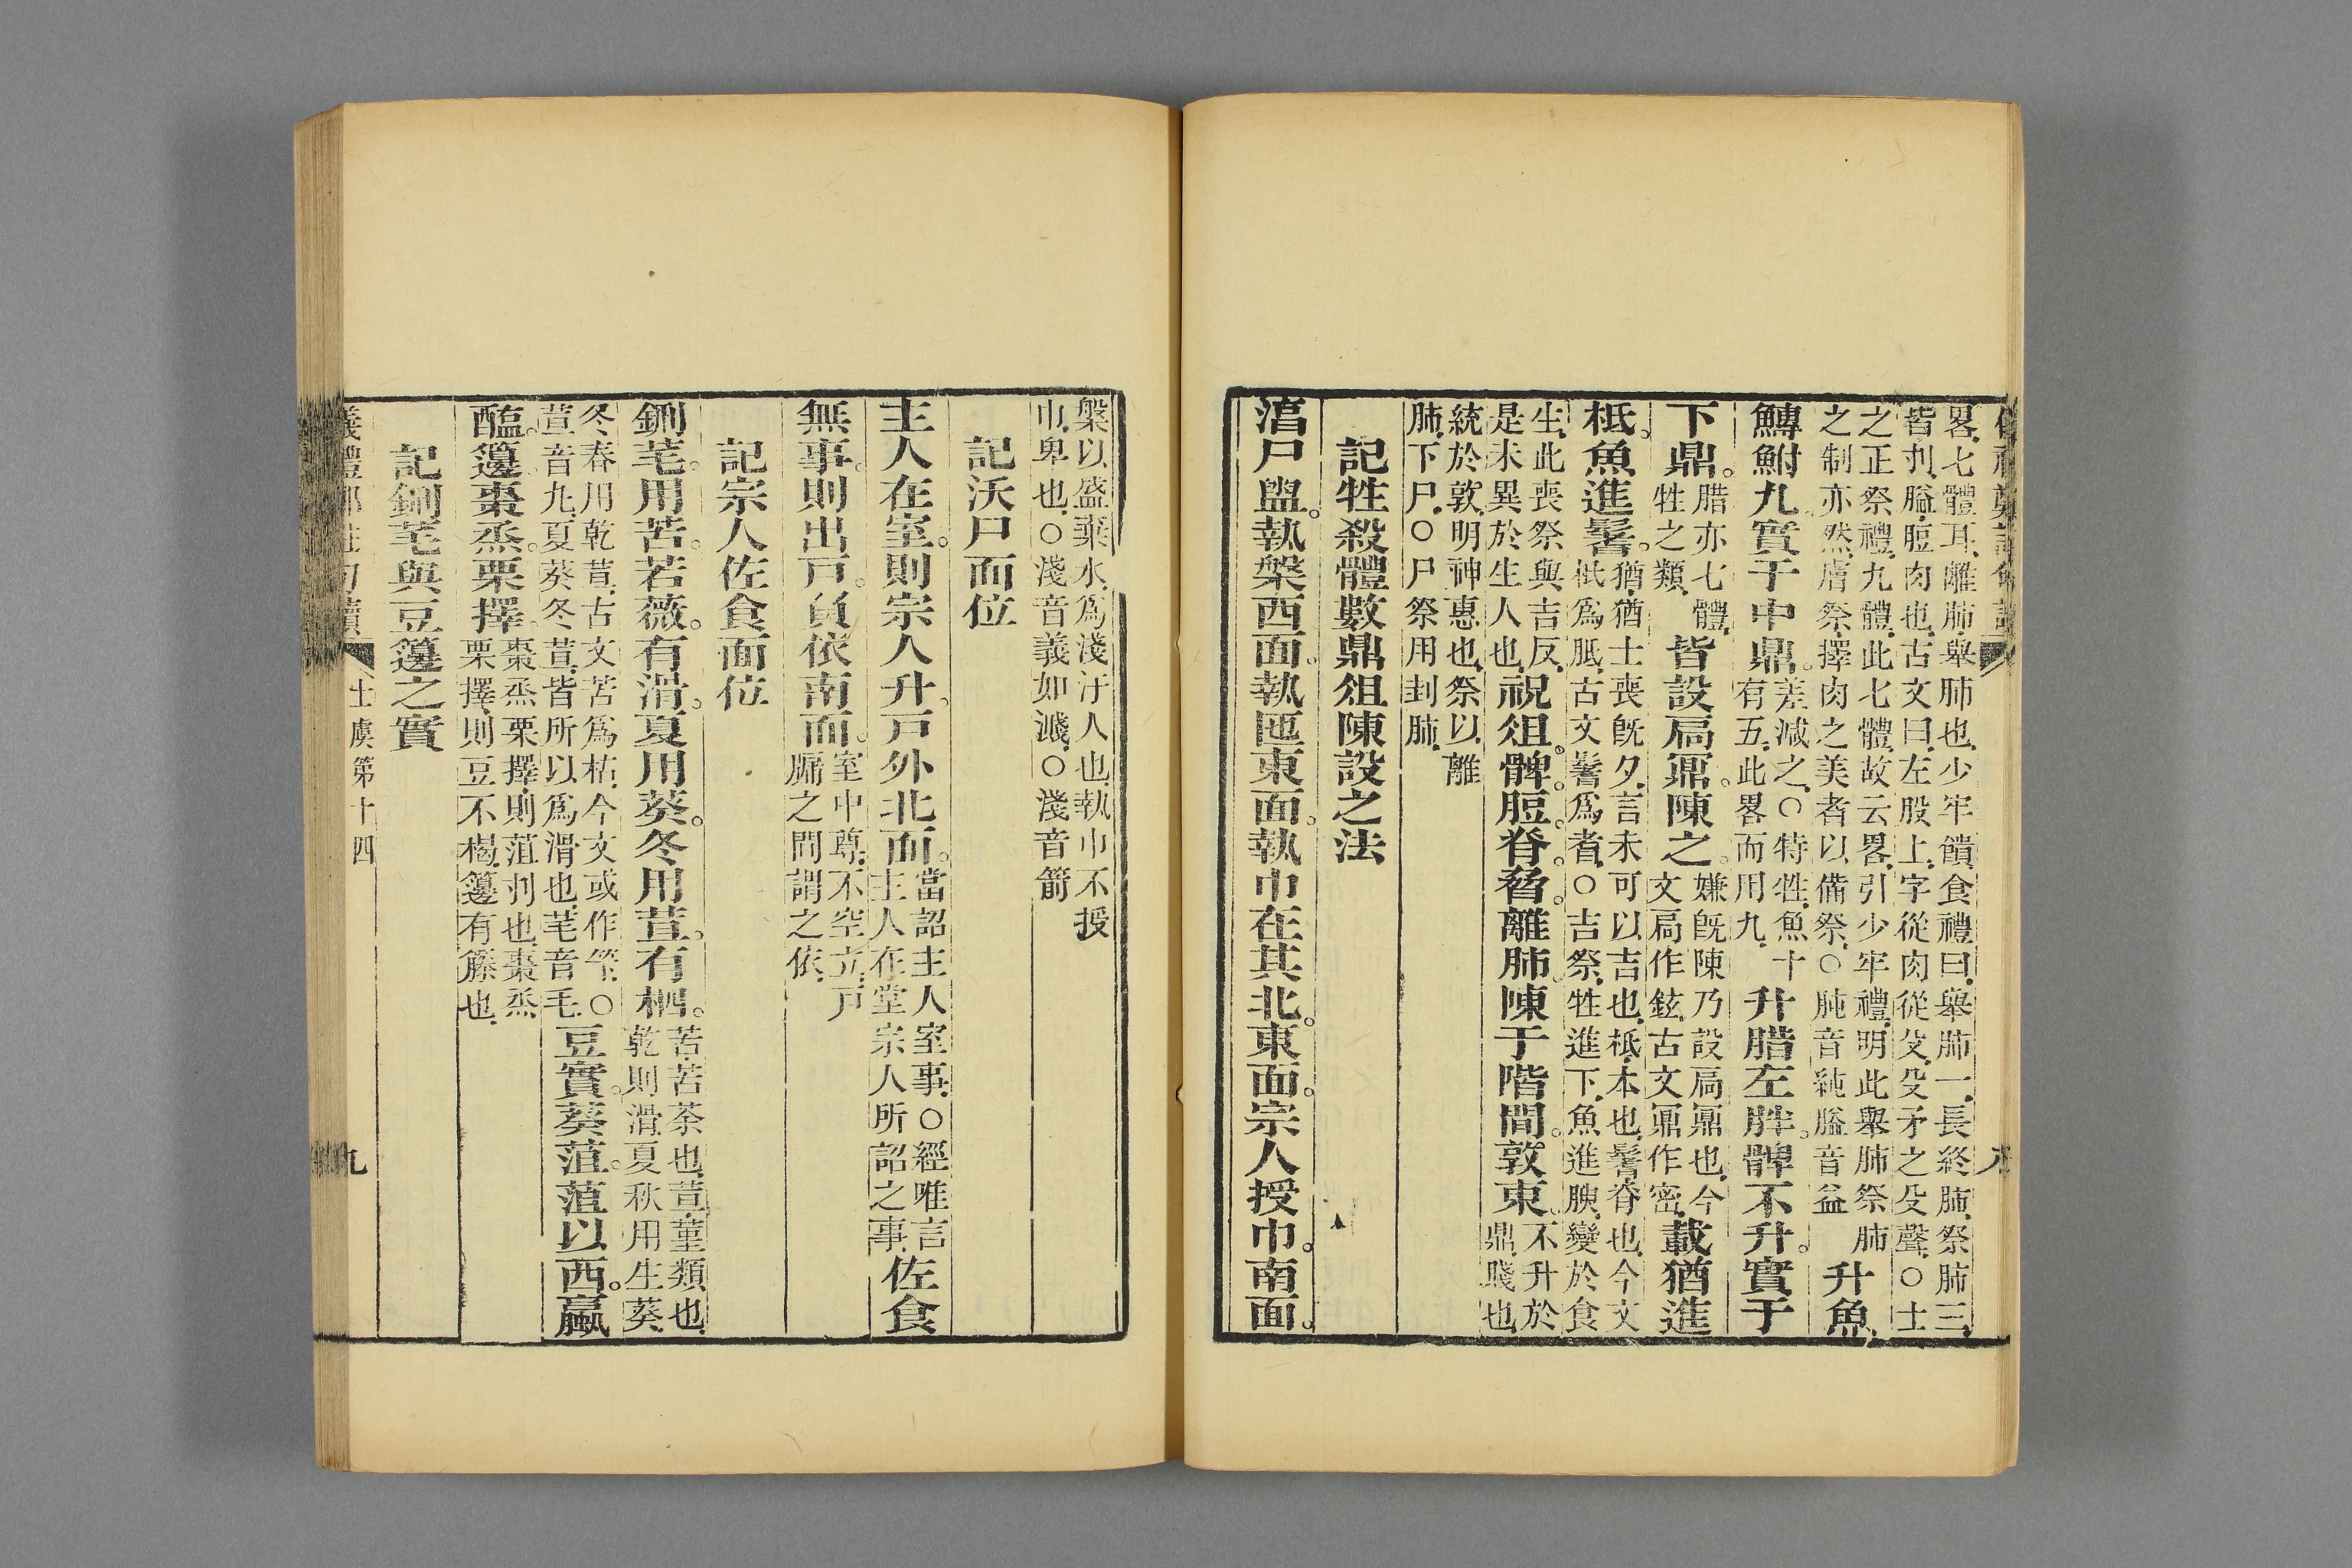 畧七體耳離肺舉肺也少牢饋食禮曰舉肺一長終肺祭肺三
皆刌膉脰肉也古文曰左股上字從肉從殳殳矛之殳聲○士
之正祭禮九體此七體故云畧引少牢禮明此舉肺祭肺
之制亦然膚祭擇肉之美者以備祭○肫音純膉音益
升魚
鱄鮒九實于中鼎
差減之○特牲魚十
有五此畧而用九
升腊左胖髀不升實于
下鼎
腊亦七體
牲之類
皆設扃鼏陳之
嫌旣陳乃設扃鼏也今
文扃作鉉古文鼏作密
載猶進
柢魚進鬐
猶猶士喪旣夕言未可以吉也柢本也鬐脊也今文
柢爲胝古文鬐爲耆○吉祭牲進下魚進腴變於食
生此喪祭與吉反
是未異於生人也
祝俎髀脰脊脅離肺陳于階間敦東
不升於
鼎賤也
統於敦明神惠也祭以離
肺下尸○尸祭用刲肺
記牲殺體數鼎俎陳設之法
淊尸盥執槃西面執匜東面執巾在其北東面宗人授巾南面
槃以盛棄水爲淺汙人也執巾不授
巾卑也○淺音義如濺○淺音箭
記沃尸面位
主人在室則宗人升戶外北面
當詔主人室事○經唯言
主人在堂宗人所詔之事
佐食
無事則出戶負依南面
室中尊不空立戶
牖之間謂之依
記宗人佐食面位
鉶芼用苦若薇有滑夏用葵冬用荁有柶
苦苦荼也荁堇類也
乾則滑夏秋用生葵
冬春用乾荁古文苦爲枯今文或作芐○
荁音九夏葵冬荁皆所以爲滑也芼音毛
豆實葵菹菹以西蠃
醢籩棗烝栗擇
棗烝栗擇則菹刌也棗烝
栗擇則豆不楬籩有籐也
記鉶芼與豆籩之實
士虞第十四
九